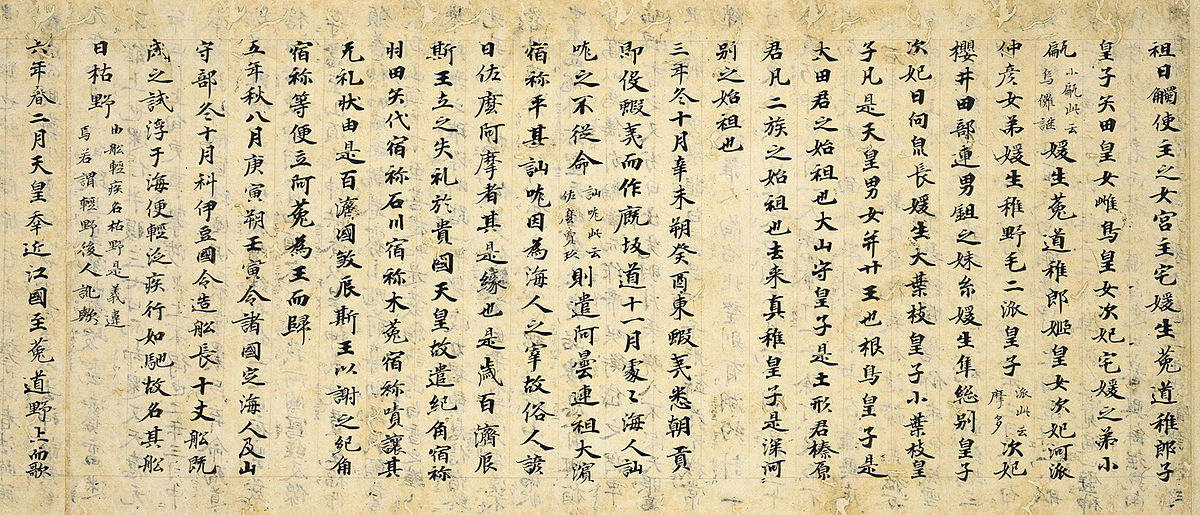 祖日觸使主之女宮主宅媛生菟道稚郎子
皇子矢田皇女雌鳥皇女次妃宅媛之弟小
甂小甂此云烏儺謎媛生菟道稚郎姬皇女次妃河派
仲彦女弟媛生稚野毛二派皇子派此云摩多次妃
櫻井田部連男鉏之妹糸媛生隼総別皇子
次妃日向泉長媛生大葉枝皇子小葉枝皇
子凡是天皇男女并廿王也根鳥皇子是
太田君之始祖也大山守皇子是土形君榛原
君凡二族之始祖也去来真稚皇子是深河
別之始祖也
三年冬十月辛未朔癸酉東蝦夷悉朝貢
即役蝦夷而作廐坂道十一月處々海人訕
哤之不従命訕哤此云佐麼賣玖則遣阿曇連祖大濱
宿祢平其訕哤因為海人之宰故俗人諺
日佐麼阿摩者其是緣也是歲百濟辰
斯王立之失礼於貴國天皇故遣紀角宿祢
羽田矢代宿祢石川宿祢木菟宿祢嘖讓其
无礼狀由是百濟國敓辰斯王以謝之紀角
宿祢等便立阿菟為王而歸
五年秋八月庚寅朔壬寅令諸國定海人及山
守部冬十月科伊豆國令造舩長十丈舩既
成之試浮于海便輕泛疾行如馳故名其舩
日枯野由舩輕疾名枯野是義違焉若謂輕野後人訛歟
六年春二月天皇幸近江國至菟道野上而歌